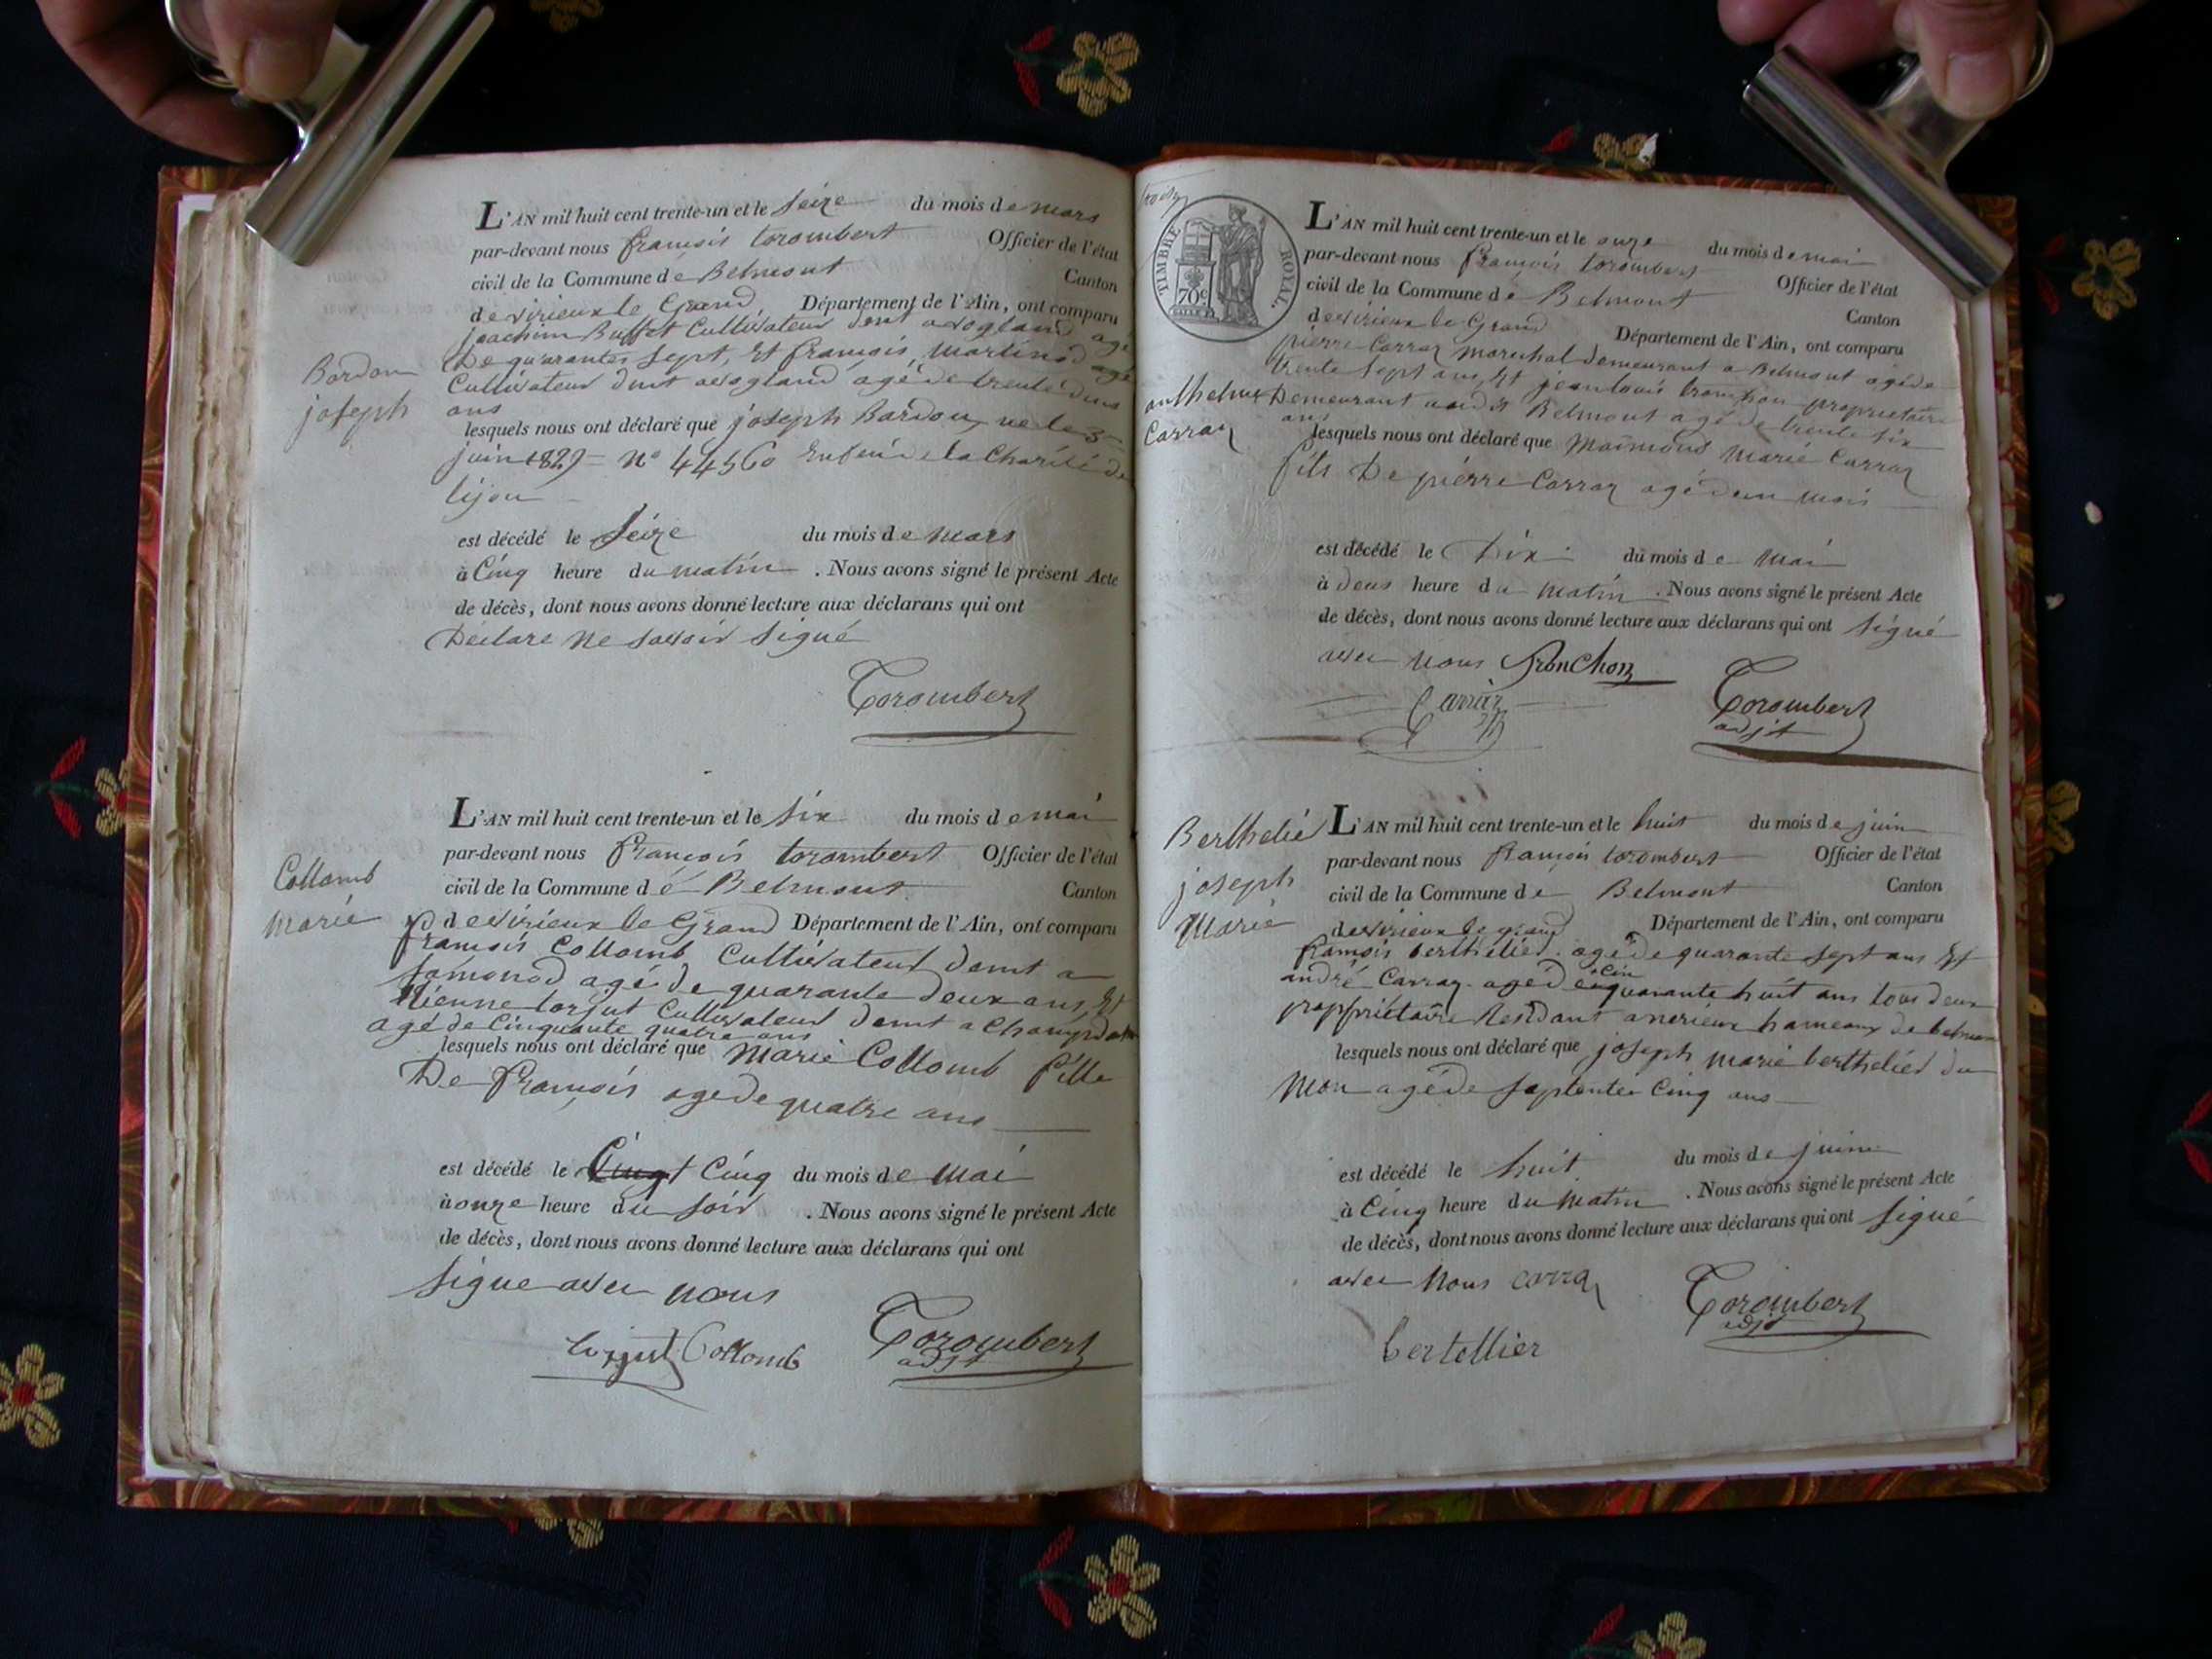 L'AN mil huit cent trente-un et le seize du mois de mars
par-devant nous françois torombert Officier de l'état
civil de la Commune de Belmont Canton
de virieux le Grand Département de l'Ain, ont comparu
joachim Buffet Cultivateur demt a vogland agé
De quarantes sept, Et françois martinod agé
Cultivateur dmt avogland agé de trente deus
ans
Bardou
joseph
lesquels nous ont déclaré que joseph Bardou, né le 3
juin 1829 = N° 44560 Enfen de la Charité de
lijou
est décédé le seize du mois de mars
à Cinq heure du matin . Nous avons signé le présent Acte
de décès, dont nous avons donné lecture aux déclarans qui ont
Déclare ne savoir signé
Torombert
Collomb
marie
L'AN mil huit cent trente-un et le six du mois de mai
par-devant nous françois torombert Officier de l'état
civil de la Commune dé Belmont Canton
de virieux le Grand Département de l'Ain, ont comparu
françois Collomb Cultivateur demt a
agé de quarante deux ans, Et
torjut Cultivateur demt a
agé de Cinquante quatre ans
lesquels nous ont déclaré que Marie Collomb fille
De françois agé de quatre ans
est décédé le Cinq du mois de mai
à onze heure du soir . Nous avons signé le présent Acte
de décès, dont nous avons donné lecture aux déclarans qui ont
signe avec nous
torjut Collomb Torombert
adjt
TIMBRE ROYAL
70c
anthelme
Carraz
L'AN mil huit cent trente-un et le onze du mois de mai
par-devant nous françois torombert Officier de l'état
civil de la Commune dé Belmont Canton
de virieux le Grand Département de l'Ain, ont comparu
pierre Carraz marechal demeurant a Belmont agé de
trente sept ans, Et jean louis tronchon proprietaire
Demeurant audit Belmont agé de trente six
ans
lesquels nous ont déclaré que Marie Carraz
fils De pierre Carraz agé deun mois
est décédé le Dix du mois de mai
à deus heure du matin . Nous avons signé le présent Acte
de décès, dont nous avons donné lecture aux déclarans qui ont signé
avec nous Tronchon
Carraz Torombert
adjt
Berthelié
joseph
Marie
L'AN mil huit cent trente-un et le huit du mois de juin
par-devant nous françois torombert Officier de l'état
civil de la Commune de Belmont Canton
de virieux le grand Département de l'Ain, ont comparu
françois berthelier agé de quarante sept ans Et
andré Carraz agé de quarante huit ans tous deux
proppriétaire Residans hameaux de belmon
lesquels nous ont déclaré que joseph marie berthelier du
Mon agé de septente Cinq ans
est décédé le huit du mois de juin
à Cinq heure du matin . Nous avons signé le présent Acte
de décès, dont nous avons donné lecture aux déclarans qui ont signé
avec nous carraz
Torombert
adjt
bertellier